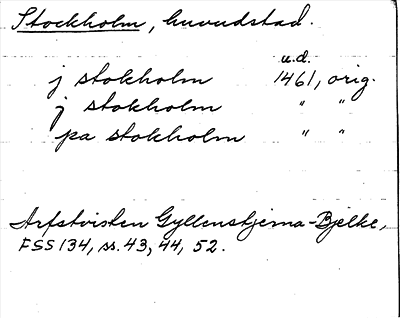 Stockholm, huvudstad.
u.d.
j stokholm 1461, orig.
j stokholm " "
pa stokholm " "
Arfstvisten Gyllenstjerna-Bjelke,
FSS 134, ss. 43, 44, 52.